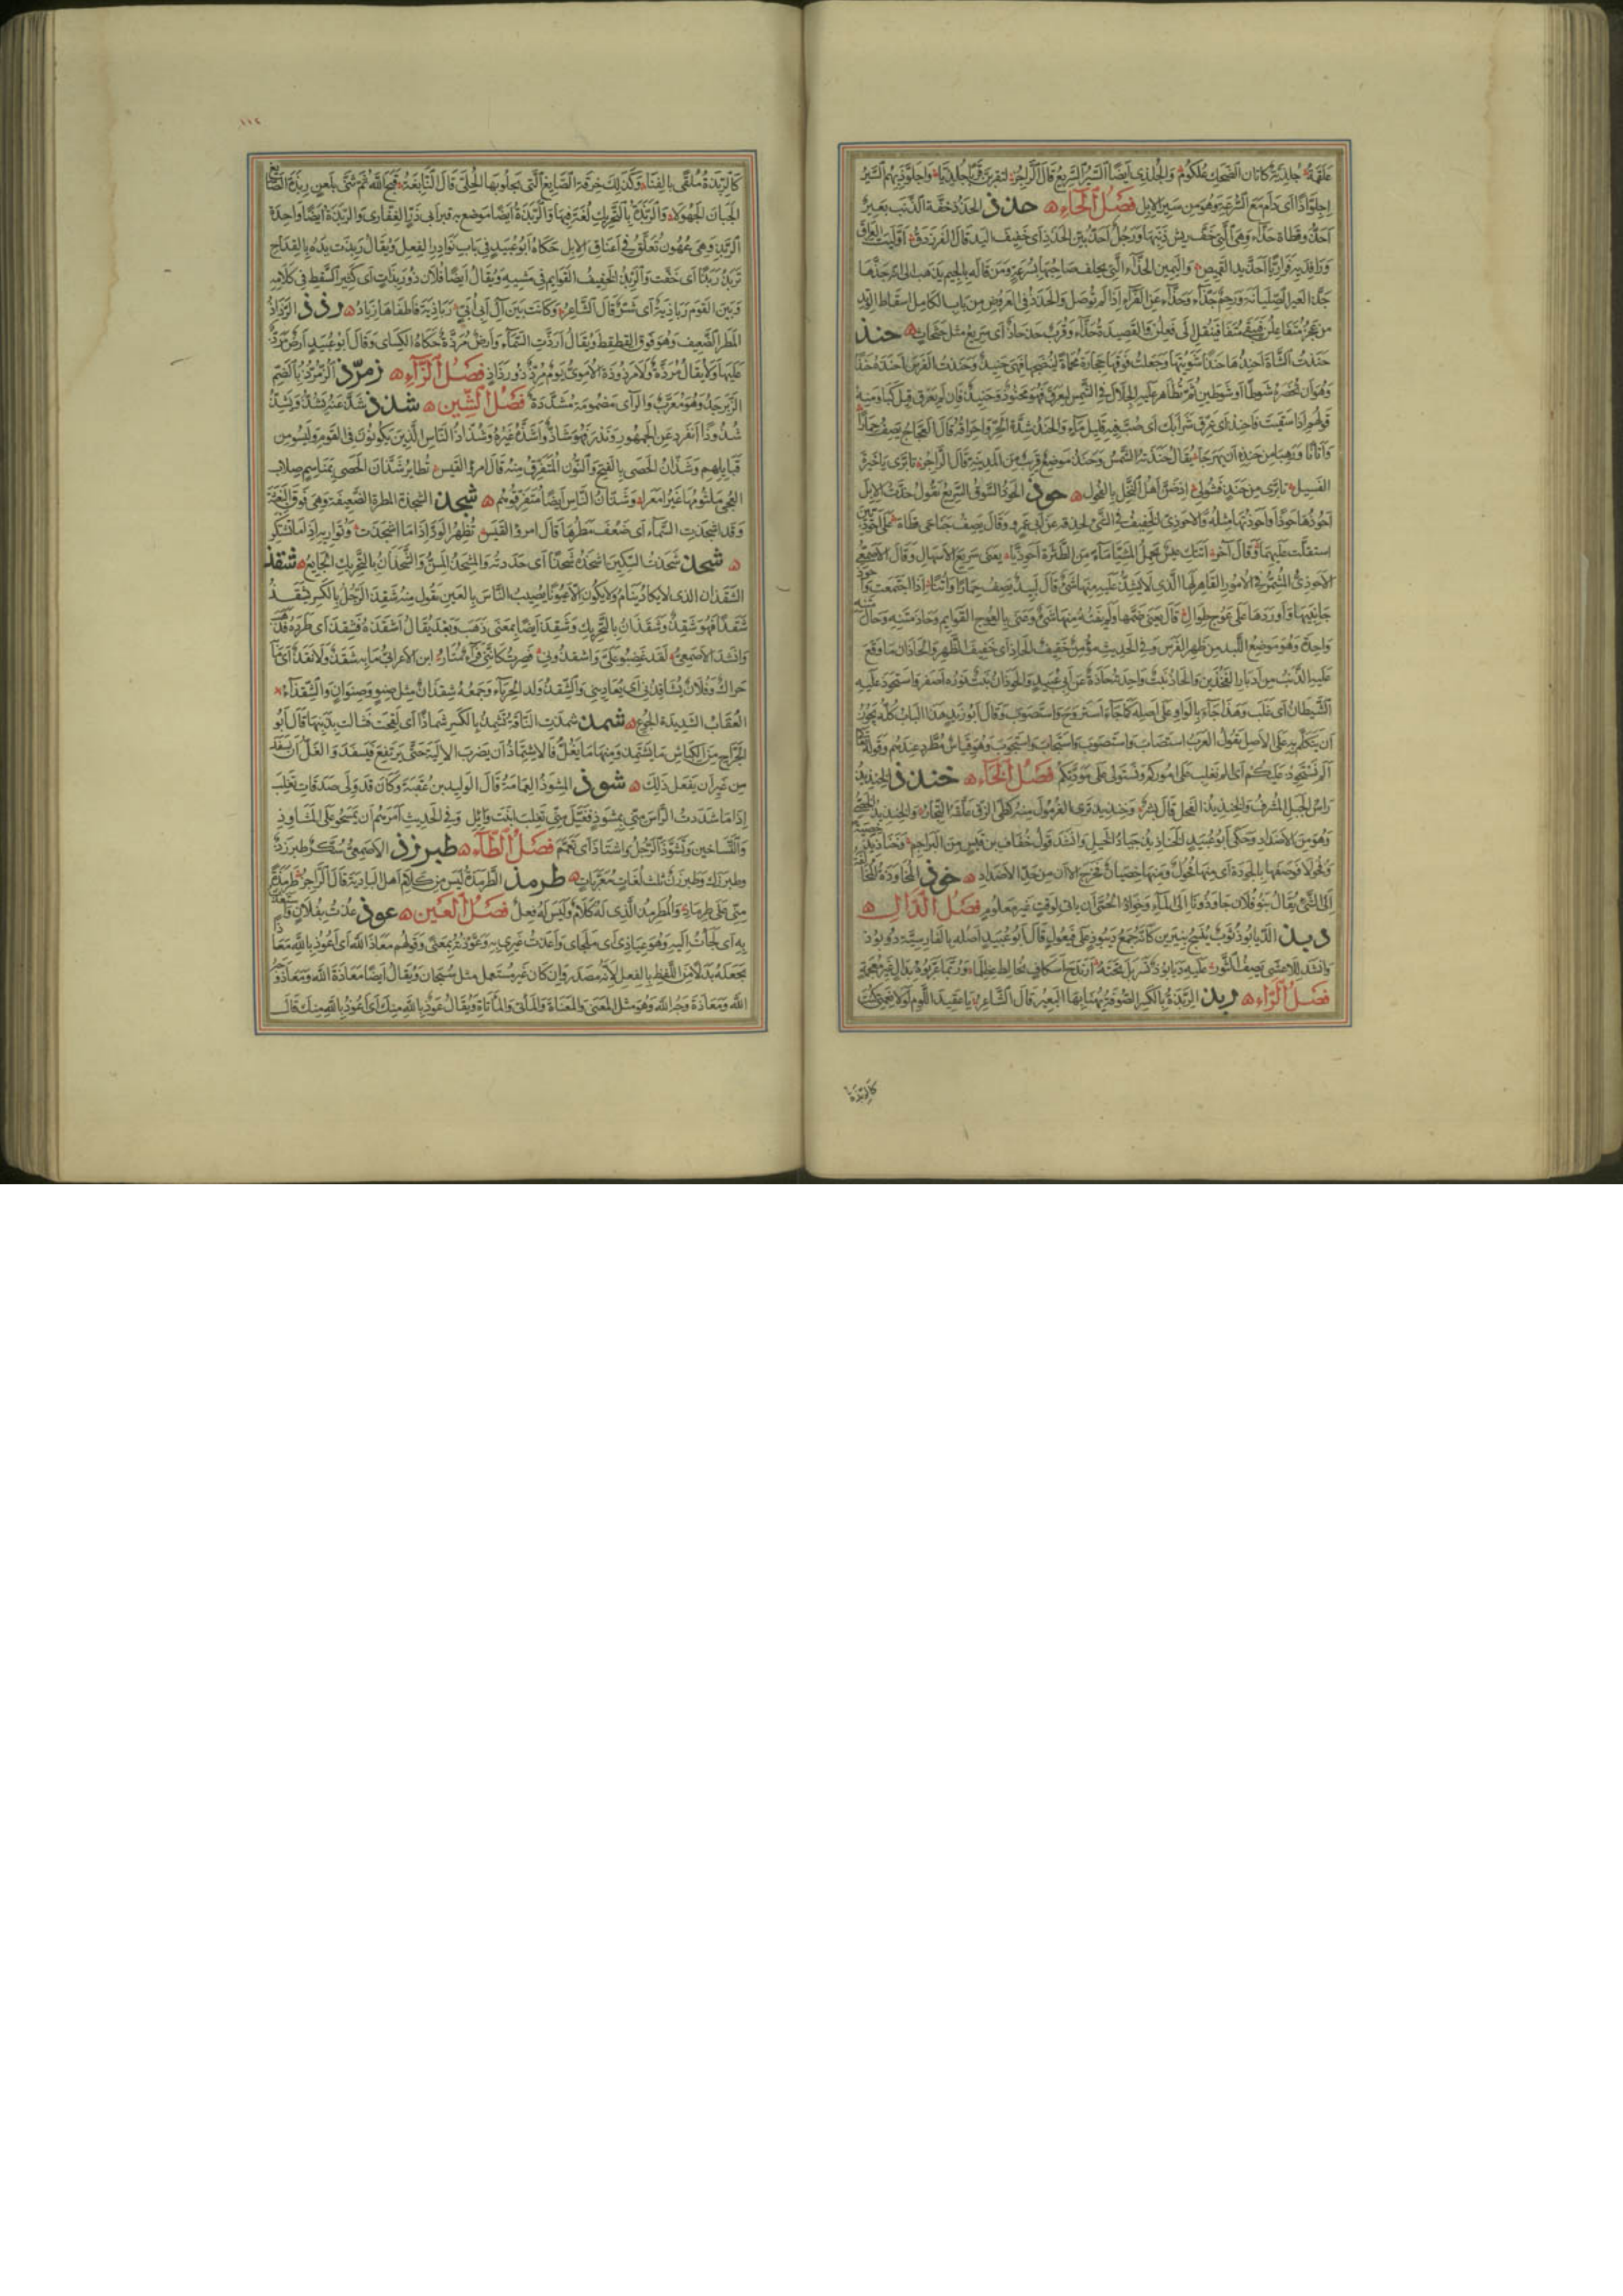 علقمة جلذية كاتان الضحل علكوم والجلذى ايضا السير السريع قال الراجز لتقربن قربا جلذيا واجلوذ بهم السير
اجلواذا اى دام مع السرعة وهو من سير الابل فصل الحاء حذذ الحذذ خفة الذنب بعير
احذ وقطاة حذاء وهى التى خف ريش ذنبها ورجل احذ بين الحذذ اى خفيف اليد قال الفرزدق اوليت العراق
ورافديه فزاريا احذ يد القميص واليمين الحذاء التى يحلف صاحبها بسرعة ومن قاله بالجيم يذهب الى انه جذها
جذ العير الصليانة ورحم جذاء وحذاء عن الفراء اذا لم توصل والحذذ فى العروض من باب الكامل اسقاط الوتد
من عجز متفاعلن فيبقى متفا فينقل الى فعلن والقصيدة حذاء وقرب حذحاذ اى سريع مثل حثحاث حنذ
حنذت الشاة احنذها حنذا شويتها وجعلت فوقها حجارة محماة لينضجها فهى حنيذ وحنذت الفرس احنذه حنذا
وهو ان تحضره شوطا او شوطين ثم تظاهر عليه الجلال فى الشمس ليعرق فهو محنوذ وحنيذ فان لم يعرق قيل كبا ومنه
قولهم اذا سقيت فاحنذ اى عرق شرابك اى صب فيه قليل ماء والحنذ شدة الحر واحراقه قال العجاج يصف حمارا
واتانا ورهبا من حنذه ان يهرجا يقال حنذته الشمس وحنذ موضع قريب من المدينة قال الراجز تابرى يا خيرة
الفسيل تابرى من حنذ فشولى اذ ضن اهل النخل بالفحول حوذ الحوذ السوق السريع تقول حذت الابل
احوذها حوذا واحوذتها مثله والاحوذى الخفيف فى الشئ لحذقه عن ابى عمرو وقال يصف جناحى قطاة على احوذيين
استقلت عليهما وقال آخر اتتك عيس تحمل المشيا ماء من الطثرة احوذيا يعنى سريع الاسهال وقال الاصمعى
الاحوذى المشمر فى الامور القاهر لها الذى لا يشذ عليه منها شئ قال لبيد يصف حمارا واتنا اذا اجتمعت واحوذ
جانبيها واوردها على عوج طوال قال يعنى ضمها ولم يفته منها شئ وعنى بالعوج القوايم وحاذ متنه وحال متنه
واحد وهو موضع اللبد من ظهر الفرس وفى الحديث مؤمن خفيف الحاذ اى خفيف الظهر والحاذان ما وقع
عليه الذنب من ادبار الفخذين والحاذ نبت واحدته حاذة عن ابى عبيد والحوذان نبت نوره اصفر واستحوذ عليه
الشيطان اى غلب وهذا جاء بالواو على اصله كما جاء استروح واستصوب وقال ابو زيد هذا الباب كله يجوز
ان يتكلم به على الاصل تقول العرب استصاب واستصوب واستجاب واستجوب وهو قياس مطرد عندهم وقوله تعالى
الم نستحوذ عليكم اى الم نغلب على اموركم ونستولى على مودتكم فصل الخاء خنذذ الخنذيذ
راس الجبل المشرف والخنذيذ الفحل قال بشر وخنذيذ ترى الغرمول منه كطى الزق علقه التجار والخنذيذ الخصى
وهو من الاضداد وحكى ابو عبيد الخناذيذ جياد الخيل وانشد قول خفاف بن قيس من البراجم وخناذيذ خصية
وفحولا فوصفها بالجودة اى منها فحول ومنها خصيان فخرج الآن من حد الاضداد خوذ المخاوذة المخالفة
الى الشئ يقال بنو فلان خاوذونا الى الماء وخواذ الحمى ان ياتى لوقت غير معلوم فصل الدال
دبذ الديابوذ ثوب ينسج بنيرين كانه جمع ديبوذ على فيعول قال ابو عبيد اصله بالفارسية دوبوذ
وانشد للاعشى يصف الثور عليه ديابوذ تسربل تحته ارندج اسكاف يخالط عظلما وربما عربوه بدال غير معجمة
فصل الراء ربذ الربذة بالكسر الصوفة يهنا بها البعير قال الشاعر يا عقيد اللوم لولا نعمتى كنت
كالربذة
١١٢
كالربذة ملقى بالفناء وكذلك خرقة الصايغ التى يجلو بها الحلى قال النابغة قبح الله ثم ثنى بلعن ربذة الصايغ
الجبان الجهولا والربذة بالتحريك لغة فيها والربذة ايضا موضع به قبر ابى ذر الغفارى والربذة ايضا واحدة
الربذ وهى عهون تعلق فى اعناق الابل حكاه ابو عبيد فى باب نوادر الفعل ويقال ربذت يده بالقداح
تربذ ربذا اى خفت والربذ الخفيف القوايم فى مشيه ويقال ايضا فلان ذو ربذات اى كثير السقط فى كلامه
وبين القوم رباذية اى شر قال الشاعر وكانت بين آل ابى ابى رباذية فاطفاها زياد رذذ الرذاذ
المطر الضعيف وهو فوق القطقط ويقال ارذت السماء وارض مرذة حكاه الكساى وقال ابو عبيد ارض مرذ
عليها ولا يقال مرذة ولا مرذوذة الاموى يوم مرذ ذو رذاذ فصل الزاء زمرذ الزمرذ بالضم
الزبرجد وهو معرب والرآى مضمومة مشددة فصل الشين شذذ شذ عنه يشذ ويشذ
شذوذا انفرد عن الجمهور وندر فهو شاذ واشذه غيره وشذاذ الناس الذين يكونون فى القوم وليسو من
قبايلهم وشذان الحصى بالفتح والنون المتفرق منه قال امرؤ القيس تطاير شذان الحصى بمناسم صلاب
العجى ملثومها غير امعرا وشذان الناس ايضا متفرقوهم شجذ الشجذة المطرة الضعيفة وهى فوق البغشة
وقد اشجذت السماء اى ضعف مطرها قال امرؤ القيس تظهر الود اذا ما اشجذت وتواريه اذا ما تشتكر
شحذ شحذت السكين اشحذه شحذا اى حددته والمشحذ المسن والشحذان بالتحريك الجايع شقذ
الشقذان الذى لا يكاد ينام ولا يكون الا عيونا يصيب الناس بالعين تقول منه شقذ الرجل بالكسر يشقذ
شقذا فهو شقذ وشقذان بالتحريك وشقذ ايضا بمعنى ذهب وبعد يقال اشقذه فشقذ اى طرده فذهب
وانشد الاصمعى لقد غضبو على واشقذونى فصرت كاننى فرا متار ابن الاعرابى ما به شقذ ولا نقذ اى ما به
حراك وفلان يشاقذنى اى يعادينى والشقذ ولد الحرباء وجمعه شقذان مثل صنو وصنوان والشقذاء
العقاب الشديدة الجوع شمذ شمذت الناقة تشمذ بالكسر شماذا اى لقحت فشالت بذنبها قال ابو
الجراح من الكباش ما يشتمذ ومنها ما يغل فالاشتماذ ان يضرب الالية حتى يرتفع فيسفد والغل ان يسفد
من غير ان يفعل ذلك شوذ المشوذ العمامة قال الوليد بن عقبة وكان قد ولى صدقات تغلب
اذا ما شددت الراس منى بمشوذ فغيك منى تغلب ابنة وايل وفى الحديث امرهم ان يمسحو على المشاوذ
والتساخين وتشوذ الرجل واشتاذ اى تعمم فصل الطاء طبرزذ الاصمعى سكر طبرزذ
وطبرزل وطبرزن ثلث لغات معربات طرمذ الطرمذة ليس من كلام اهل البادية قال الراجز طرمذة
منى على طرماذ والمطرمذ الذى له كلام وليس له فعل فصل العين عوذ عذت بفلان واستعذت
به اى لجأت اليه وهو عياذى اى ملجاى واعذت غيرى به وعوذته بمعنى وقولهم معاذ الله اى اعوذ بالله معاذا
بجعله بدلا من اللفظ بالفعل لانه مصدر وان كان غير مستعمل مثل سبحان ويقال ايضا معاذة الله ومعاذ وجه
الله ومعاذة وجه الله وهو مثل المعنى والمعناة والماتى والماتاة ويقال عوذ بالله منك اى اعوذ بالله منك قال